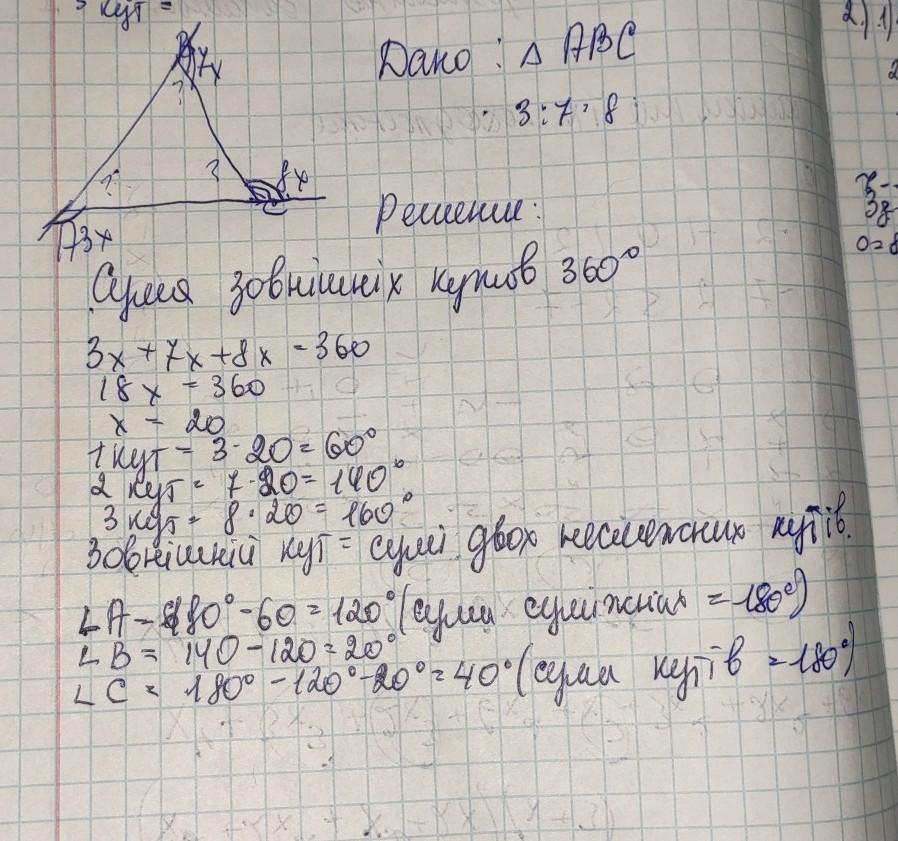 кут =
2.) 1)
B 7x
Дано : △ ABC
?
3:7:8
? ? 8x
C
A 3x
Решение:
Сума зовнішніх кутов 360°
3x + 7x + 8x = 360
18x = 360
x = 20
1 кут = 3·20 = 60°
2 кут = 7·20 = 140°
3 кут = 8·20 = 160°
Зовнішній кут = сумі двох несмежних кутів.
∠A - 180° - 60 = 120° (сума суміжних = 180°)
∠B = 140 - 120 = 20°
∠C = 180° - 120° - 20° = 40° (сума кутів = 180°)